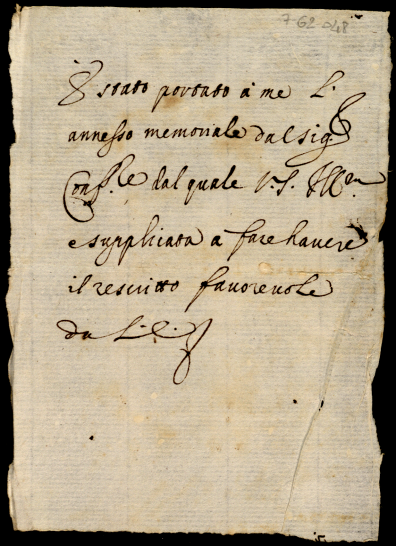 7-62-248
È stato portato à me L'
annesso memoriale dal sig.r
Consle dal quale V.S. Ill.ma
e supplicata a fare havere
il rescritto favorevole
da